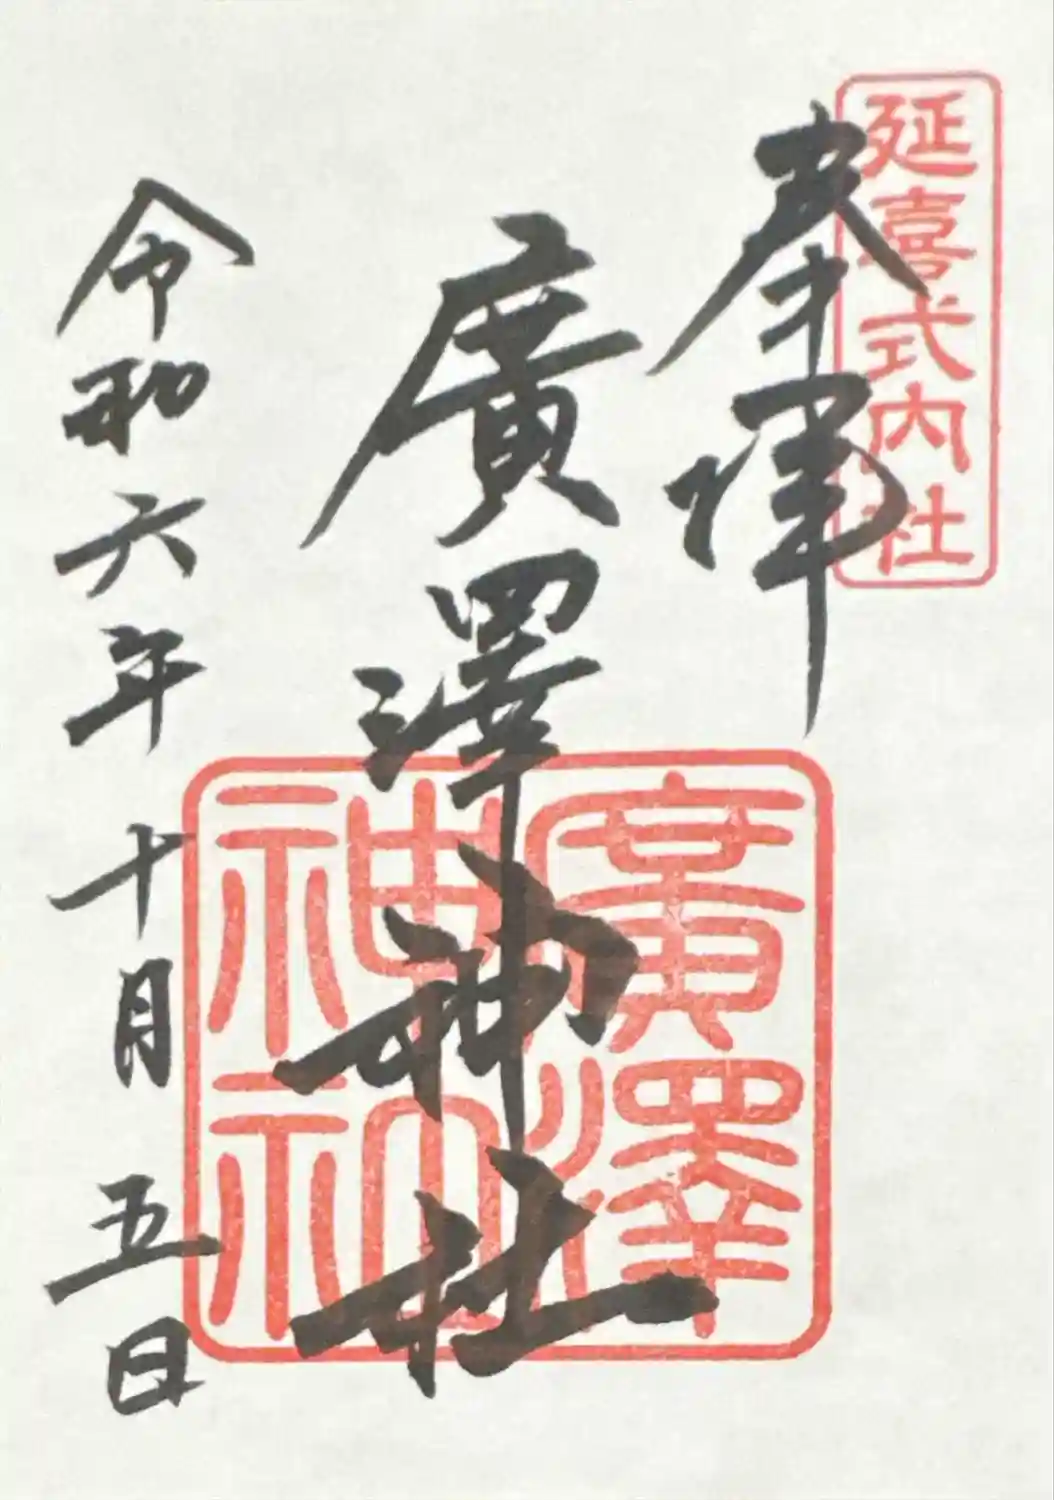 延喜式内社
奉拝
廣澤神社
廣澤
神社
令和六年十月五日